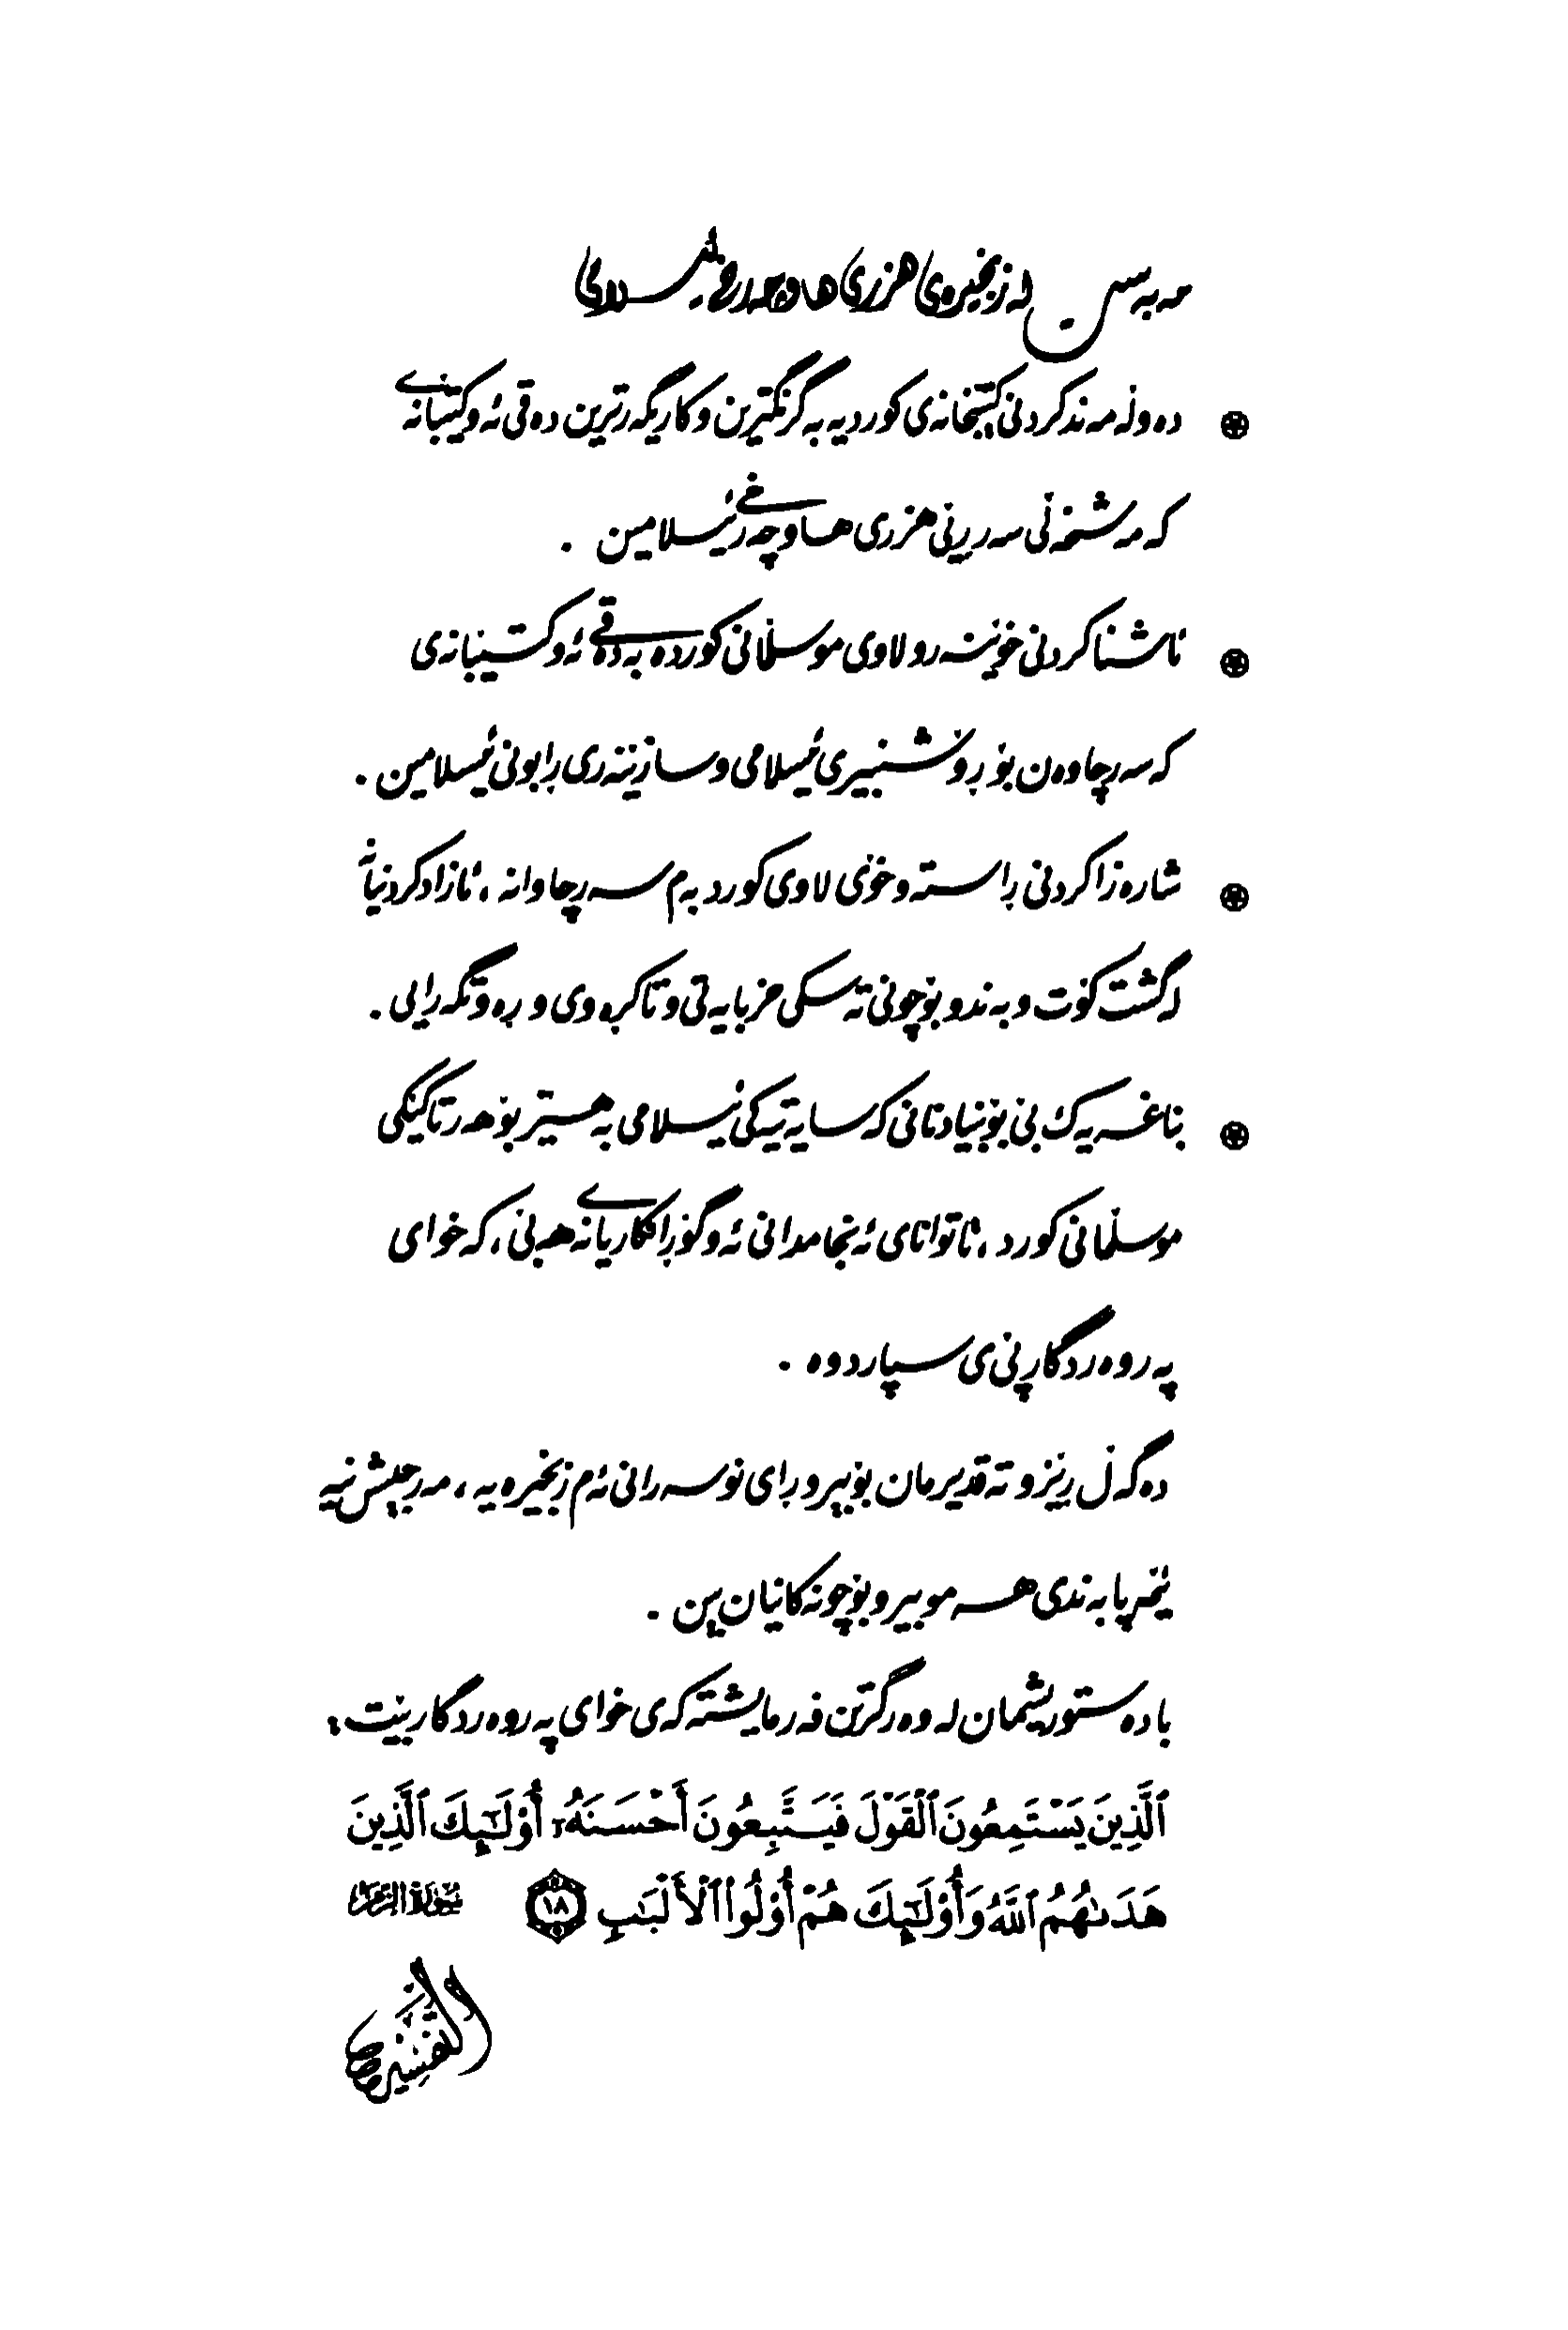 مەبەس لە زنجیرەی هزری هاوچەرخی ئیسلامی
دەوڵەمەندکردنی کتێبخانەی کوردیە بە گرنگترین و کاریگەرترین دەقی ئەو کتێبانەی
کە مەشخەڵی سەرڕێی هزری هاوچەرخی ئیسلامین .
ئاشناکردنی خوێنەرو لاوی موسڵمانی کوردە بە دەقی ئەو کتێبانەی
کە سەرچاوەن بۆ ڕۆشنبیری ئیسلامی و سازێنەری ڕابونی ئیسلامین .
شارەزاکردنی ڕاستەوخۆی لاوی کورد بەم سەرچاوانە ، ئازادکردنیانە
لە گشت کۆت و بەندو بۆچونی تەسکی حزبایەتی و تاکڕەوی و ڕەوتگەرایی .
بناغەیەک بێ بۆ بنیادنانی کەسایەتیەکی ئیسلامی بەهێستر بۆ هەر تاکێکی
موسڵمانی کورد ، تا توانای ئەنجامدانی ئەو گۆڕانکاریانەی هەبێ ، کە خوای
پەروەردگار پێی سپاردوە .
دەگەڵ ڕێزو تەقدیرمان بۆ بیرو ڕای نوسەرانی ئەم زنجیرەیە ، مەرجیش نیە
ئێمە پابەندی هەمو بیرو بۆچونەکانیان بین .
با دەستوریشمان لە وەرگرتن فەرمایشتەکەی خوای پەروەردگار بێت :
ٱلَّذِينَ يَسْتَمِعُونَ ٱلْقَوْلَ فَيَتَّبِعُونَ أَحْسَنَهُۥٓ أُوْلَٰٓئِكَ ٱلَّذِينَ
هَدَىٰهُمُ ٱللَّهُ وَأُوْلَٰٓئِكَ هُمْ أُوْلُوا۟ ٱلْأَلْبَٰبِ ١٨ سُورَةُ الزُّمَر